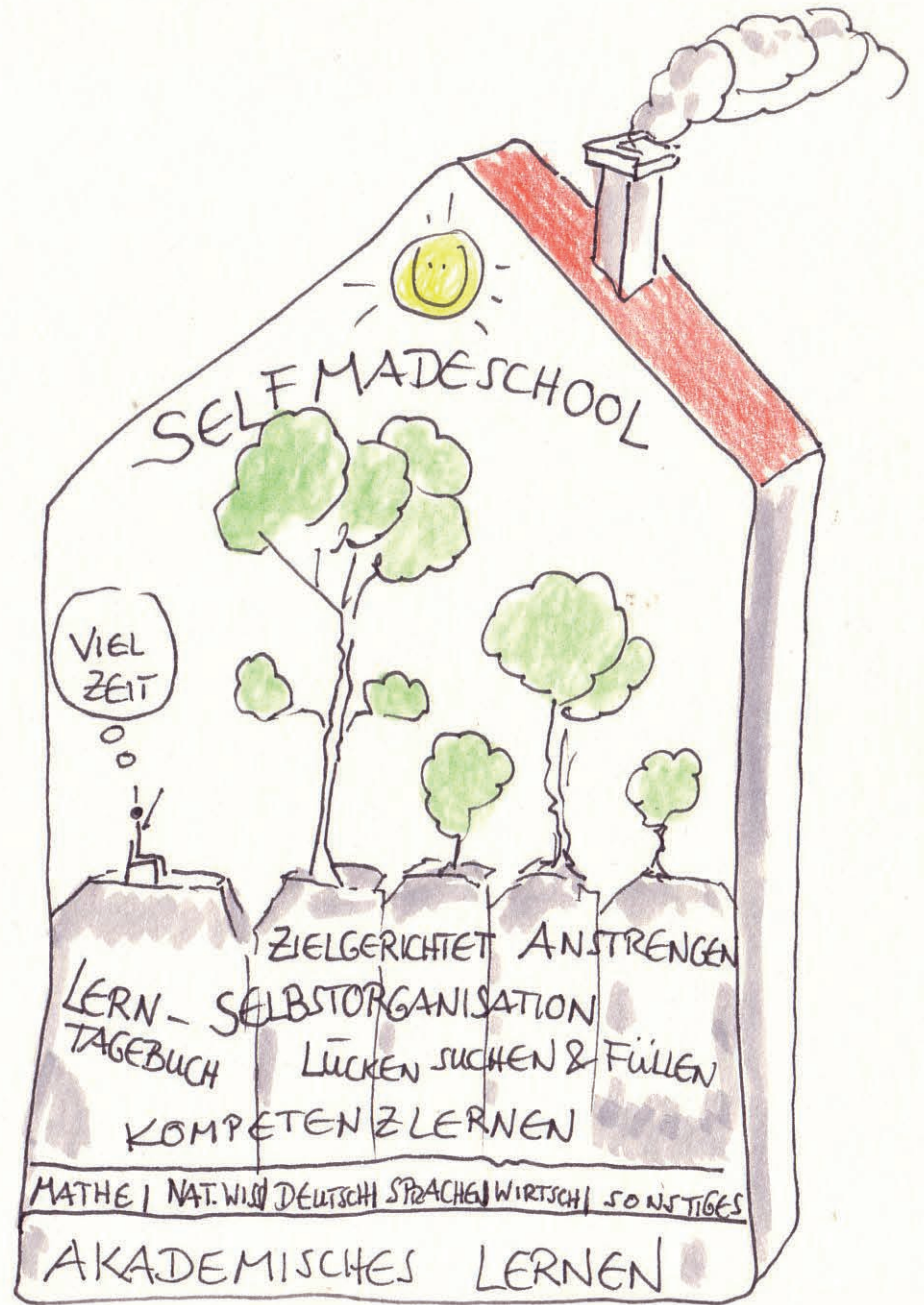 SELFMADESCHOOL
VIEL
ZEIT
ZIELGERICHTET ANSTRENGEN
LERN-
TAGEBUCH
SELBSTORGANISATION
LÜCKEN SUCHEN & FÜLLEN
KOMPETENZLERNEN
MATHE | NAT.WIS | DEUTSCH | SPRACHEN | WIRTSCH | SONSTIGES
AKADEMISCHES LERNEN